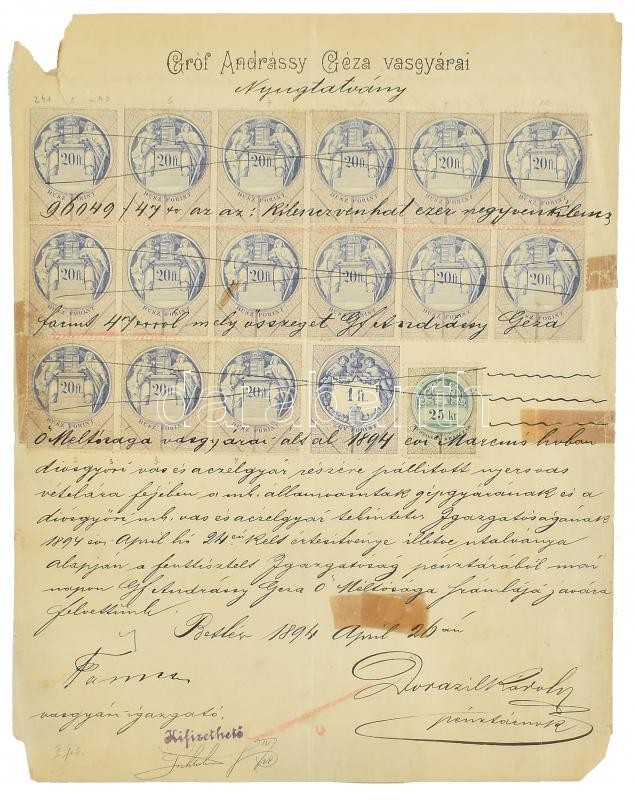 Gróf Andrássy Géza vasgyárai
Nyugtatvány
20 ft. 20 ft. 20 ft. 20 ft. 20 ft. 20 ft.
HUSZ FORINT HUSZ FORINT HUSZ FORINT HUSZ FORINT HUSZ FORINT HUSZ FORINT
96049/47 az az: Kilenczvenhat ezer negyvenkilencz
20 ft. 20 ft. 20 ft. 20 ft. 20 ft. 20 ft.
HUSZ FORINT HUSZ FORINT HUSZ FORINT HUSZ FORINT HUSZ FORINT HUSZ FORINT
forint 47 mely összeget Gf Andrássy Géza
20 ft. 20 ft. 20 ft. 1 ft. 25 kr.
HUSZ FORINT HUSZ FORINT HUSZ FORINT EGY FORINT
Ő Méltósága vasgyárai által 1894 évi Marcius hóban
diósgyőri vas és aczélgyár részére szállitott nyersvas
vételára fejében a mk. államvasutak gépgyárának és a
diósgyőri mk. vas és aczélgyár tekintetes Igazgatóságának
1894 évi April hó 24én kelt értesitvénye illetve utalványa
alapján a fenttisztelt Igazgatóság pénztárából mai
napon Gf Andrássy Géza Ő Méltósága számlája javára
felvettünk.
Betlér 1894 April 26án
vasgyári-igazgató.
Dorazil Károly
pénztárnok
Kifizethető